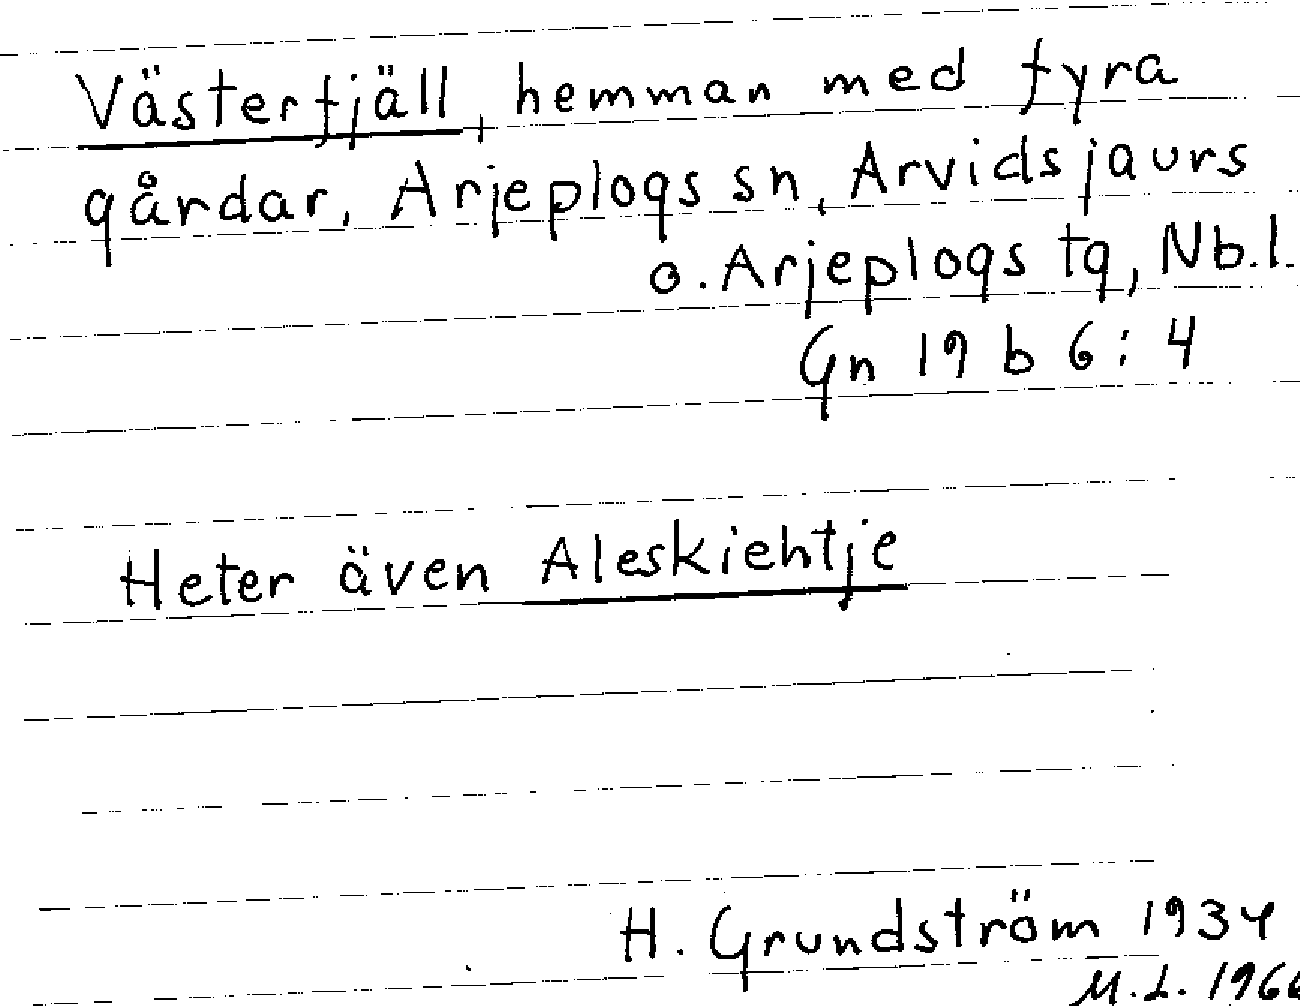 Västerfjäll, hemman med fyra
gårdar, Arjeplogs sn, Arvidsjaurs
o. Arjeplogs tg, Nb.l.
Gn 19 b 6:4
Heter även Aleskiehtje
H. Grundström 1934
M.L. 1966